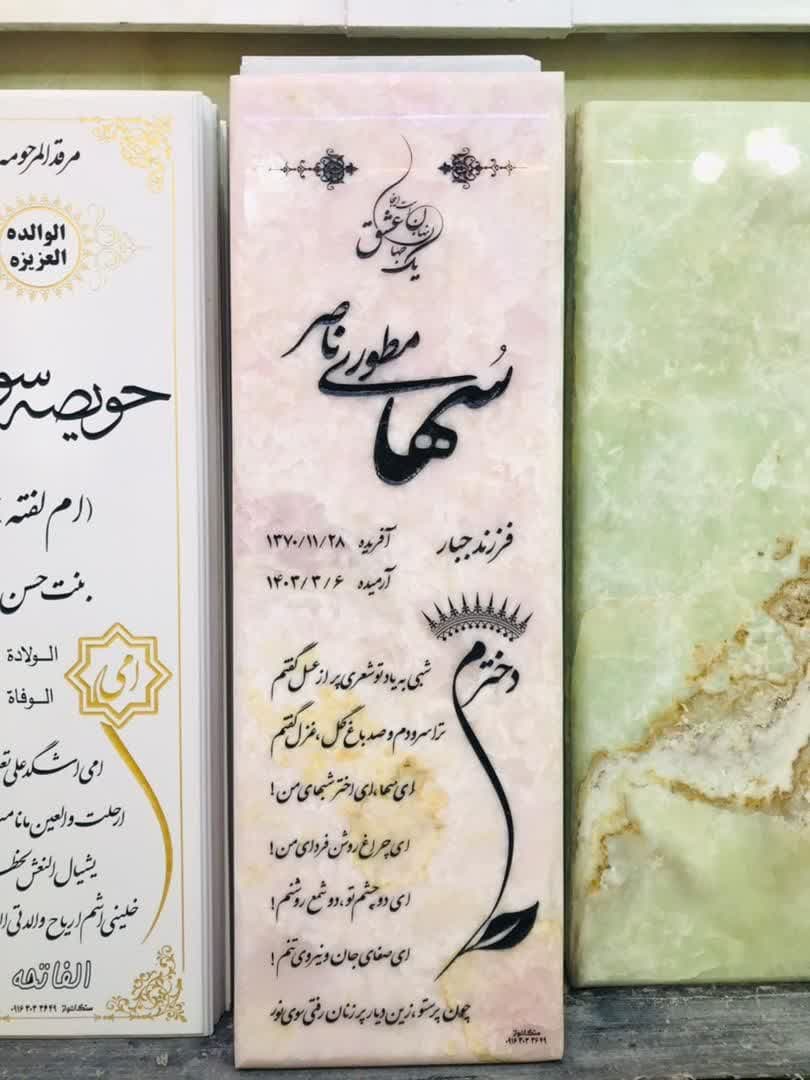 مرقد المرحومه
الوالده
العزیزه
حویصه سو
(ام لفته
بنت حسن
الولادة
الوفاة
امي
ارحلت والعین ما نا
یشیال النعش لحظ
الفاتحه
سنگ اهواز ۰۹۱۶ ۳۰۳ ۲۶۴۹
یک جهان عشق نهان است اینجا
سُهای مطوری ناصر
فرزند جبار
آفریده ۱۳۷۰/۱۱/۲۸
آرمیده ۱۴۰۳/۳/۶
دخترم
شبی به یاد تو شعری پر از عسل گفتم
ترا سرودم و صد باغ گل، غزل گفتم
ای سها، ای اختر شبهای من!
ای چراغ روشن فردای من!
ای دو چشم تو، دو شمع روشنم!
ای صفای جان و نیروی تنم!
چون پرستو، زین دیار پر زنان رفتی سوی نور
سنگ اهواز
۰۹۱۶ ۳۰۳ ۲۶۴۹